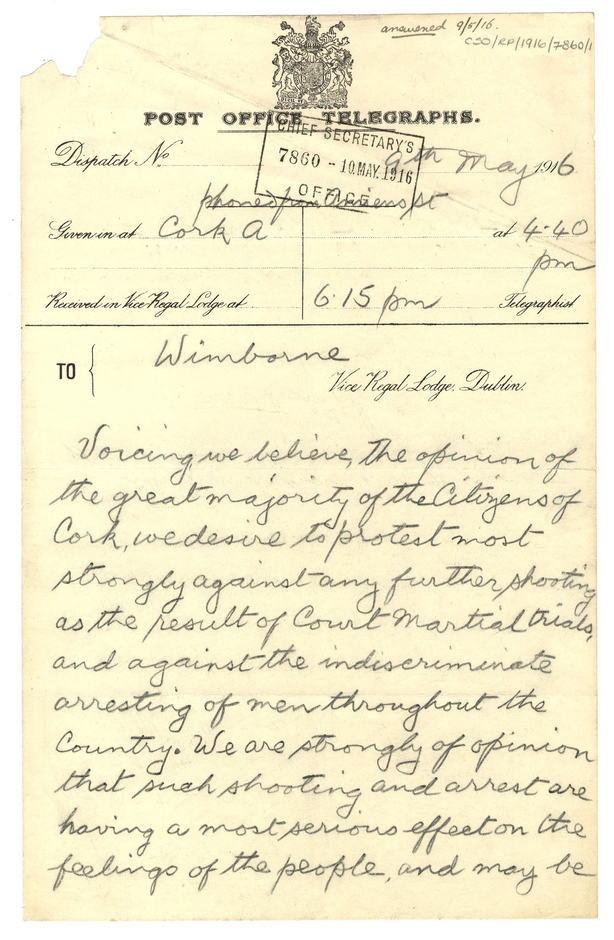 answered 9/5/16.
CSO/RP/1916/7860/1
POST OFFICE TELEGRAPHS.
CHIEF SECRETARY'S
7860 - 10.MAY.1916
OFFICE
Dispatch No 9th May 1916
phoned from Queens St
Given in at Cork A at 4.40
pm
Received in Vice Regal Lodge at 6.15 pm Telegraphist
TO { Wimborne
Vice Regal Lodge, Dublin.
Voicing, we believe, the opinion of
the great majority of the Citizens of
Cork, we desire to protest most
strongly against any further shooting
as the result of Court Martial trials,
and against the indiscriminate
arresting of men throughout the
Country. We are strongly of opinion
that such shooting and arrest are
having a most serious effect on the
feelings of the people, and may be